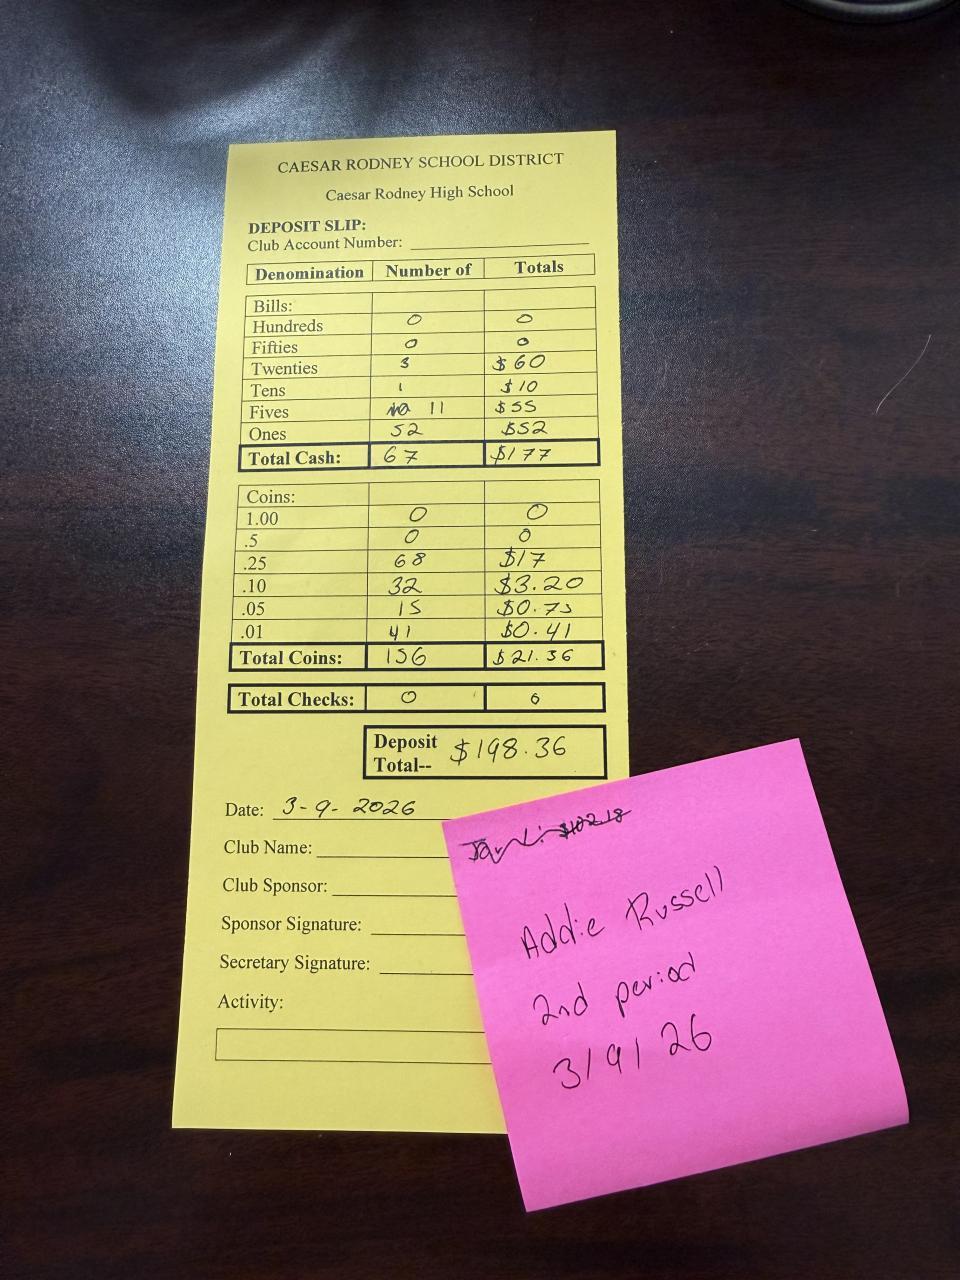 CAESAR RODNEY SCHOOL DISTRICT
Caesar Rodney High School
DEPOSIT SLIP:
Club Account Number:
Denomination Number of Totals
Bills:
Hundreds 0 0
Fifties 0 0
Twenties 3 $60
Tens 1 $10
Fives 11 $55
Ones 52 $52
Total Cash: 67 $177
Coins:
1.00 0 0
.5 0 0
.25 68 $17
.10 32 $3.20
.05 15 $0.75
.01 41 $0.41
Total Coins: 156 $21.36
Total Checks: 0 0
Deposit $198.36
Total--
Date: 3-9-2026
Club Name:
Club Sponsor:
Sponsor Signature:
Secretary Signature:
Activity:
$102.18
Addie Russell
2nd period
3/9/26